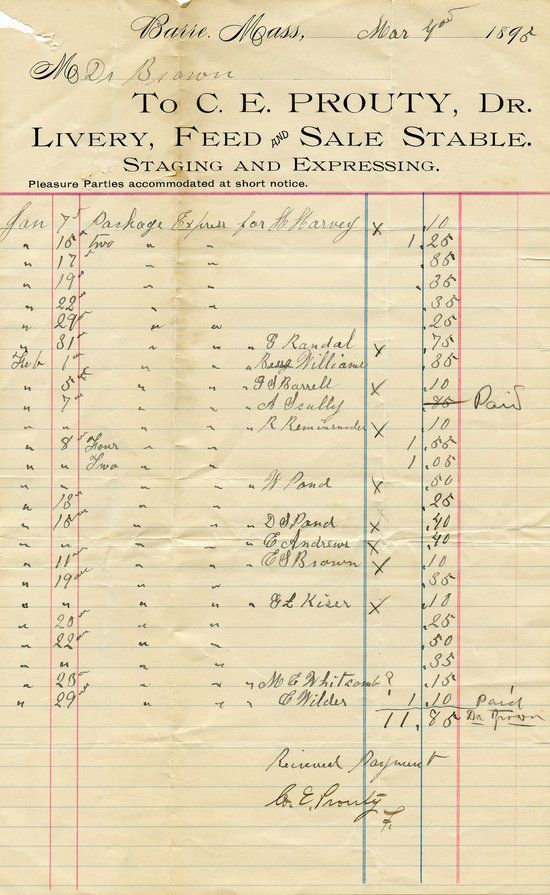 Barre, Mass, Mar 1895
M Dr Brown
To C. E. PROUTY, Dr.
LIVERY, FEED AND SALE STABLE.
STAGING AND EXPRESSING.
Pleasure Parties accommodated at short notice.
Jan 7 Package Express for H Harvey X .10
" 15 two " " 1.25
" 17 " " .35
" 19 " " .35
" 22 " " .35
" 29 " " .25
" 31 " " " E Randal X .75
Feb 1 " " " Williams .35
" 5 " " " G S Barrell X .10
" 7 " " " A Scully .85 Paid
" " " " " R X .10
" 8 Four " " 1.55
" " Two " " 1.05
" " " " " W Pond X .50
" 13 " " .25
" 15 " " " D S Pond X .40
" " " " " E Andrews X .40
" 11 " " " E S Brown X .10
" 19 " " .35
" " " " " G L Kiser X .10
" 20 " " .25
" 22 " " .50
" " " " .35
" 23 " " " M E Whitcomb ? .15
" 29 " " " E Wilder 1.10 Paid
11.85 Dr Brown
Received Payment
C. E. Prouty